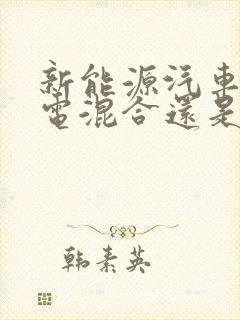 新能源汽車
電混合還是
韩素英